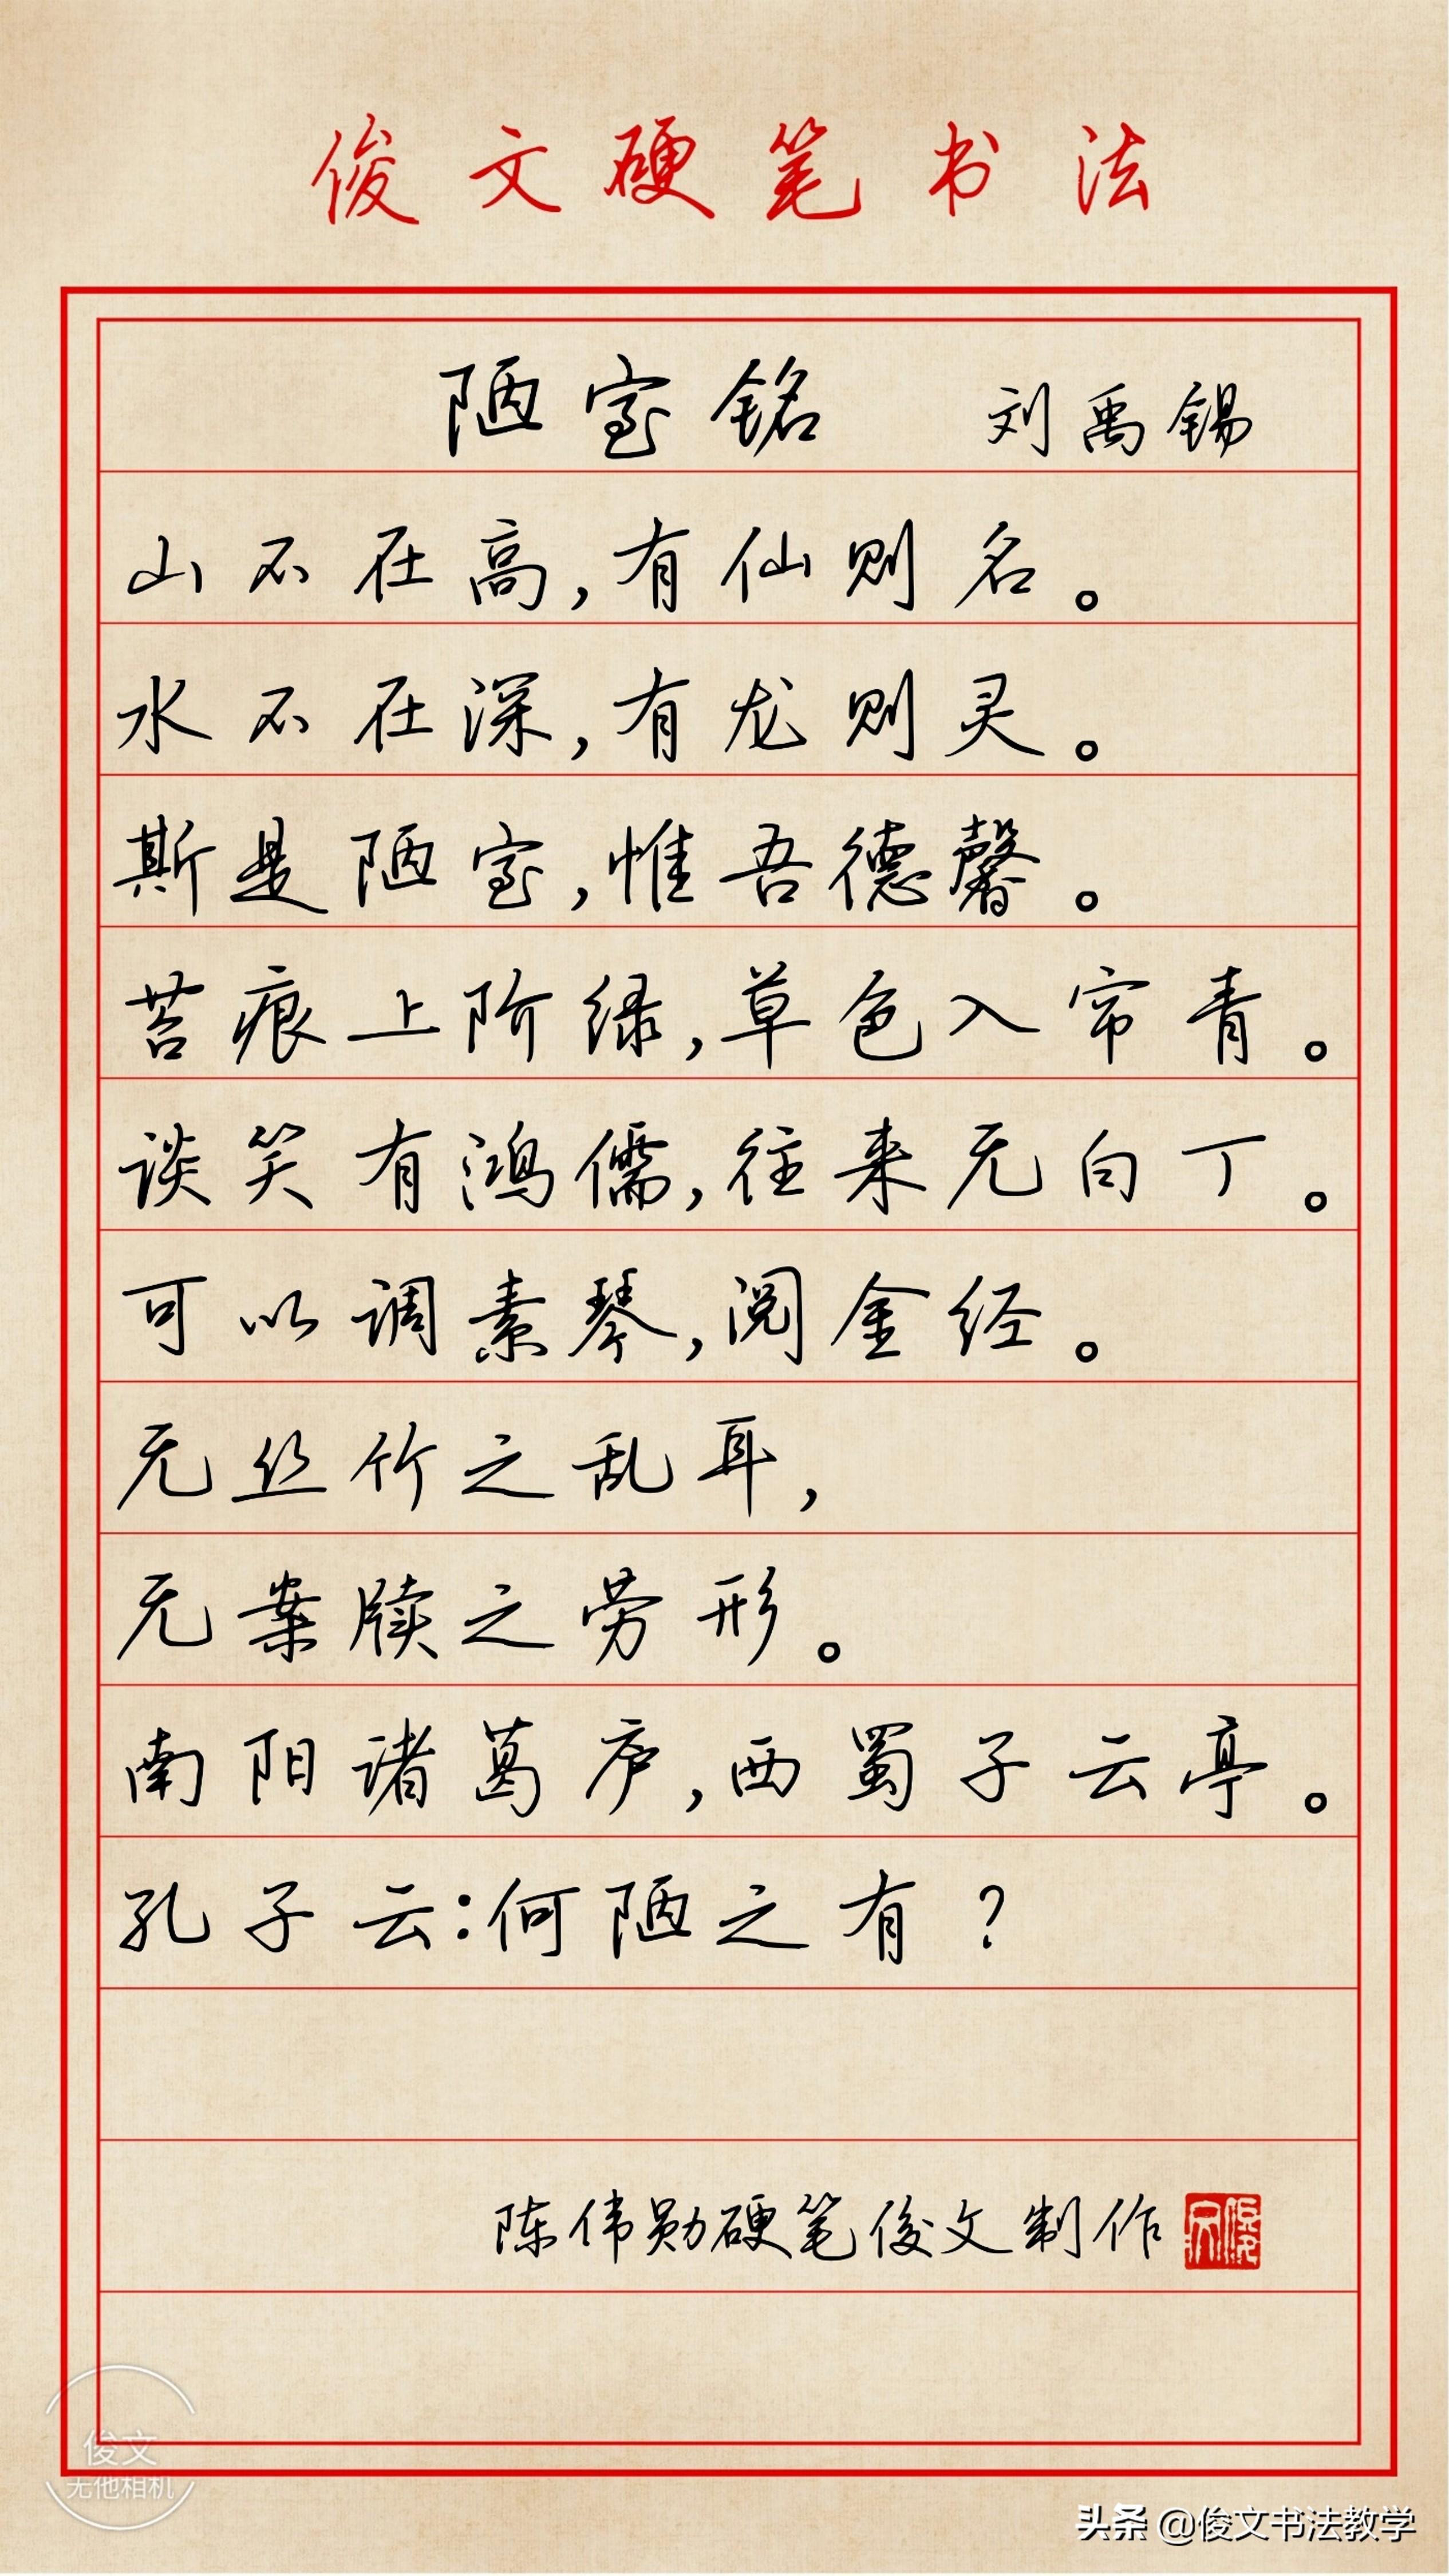 俊文硬笔书法
陋室铭 刘禹锡
山不在高,有仙则名。
水不在深,有龙则灵。
斯是陋室,惟吾德馨。
苔痕上阶绿,草色入帘青。
谈笑有鸿儒,往来无白丁。
可以调素琴,阅金经。
无丝竹之乱耳,
无案牍之劳形。
南阳诸葛庐,西蜀子云亭。
孔子云:何陋之有?
陈伟勋硬笔俊文制作
俊文
俊文
无他相机
头条 @俊文书法教学